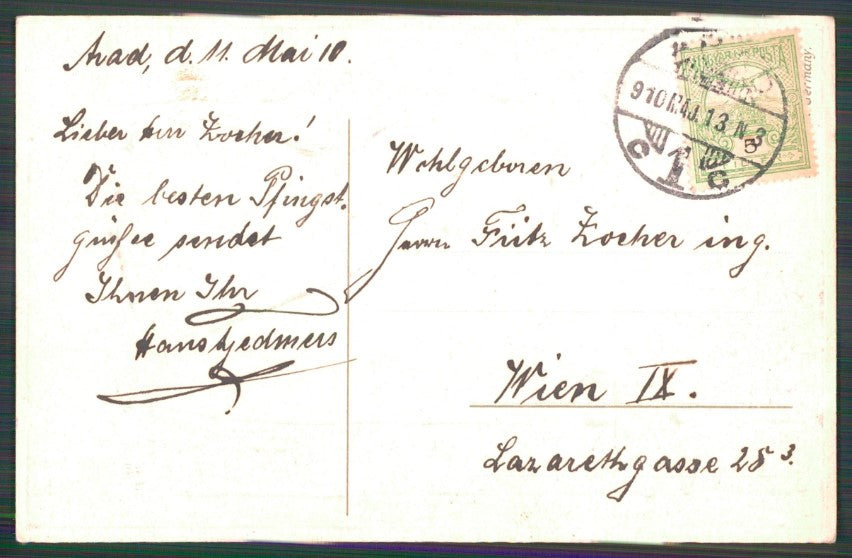 Arad, d. 11. Mai 10.
Lieber Herr Zocher!
Die besten Pfingst-
grüße sendet
Ihnen Ihr
Hans
Wohlgeboren
Herrn Fritz Zocher ing.
Wien IX.
Lazarethgasse 25 3.
MAGYAR KIR. POSTA
5
910 MÁJ. 13 N 3
Germany.